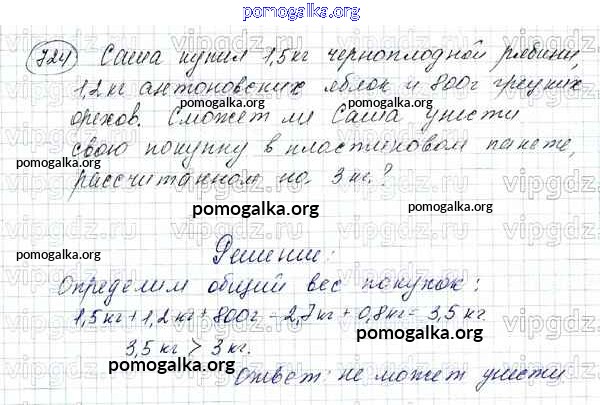 pomogalka.org
724 Саша купил 1,5 кг черноплодной рябини,
1,2 кг антоновских яблок и 800г грецких
орехов. Сможет ли Саша унести
pomogalka.org
свою покупку в пластиковом пакете,
pomogalka.org
рассчитанном на 3 кг.?
pomogalka.org
pomogalka.org
Решение:
Определим общий вес покупок:
1,5кг + 1,2 кг + 800г = 2,7кг + 0,8кг = 3,5 кг
pomogalka.org
pomogalka.org
3,5 кг > 3 кг.
Ответ: не может унести.
vipgdz.ru